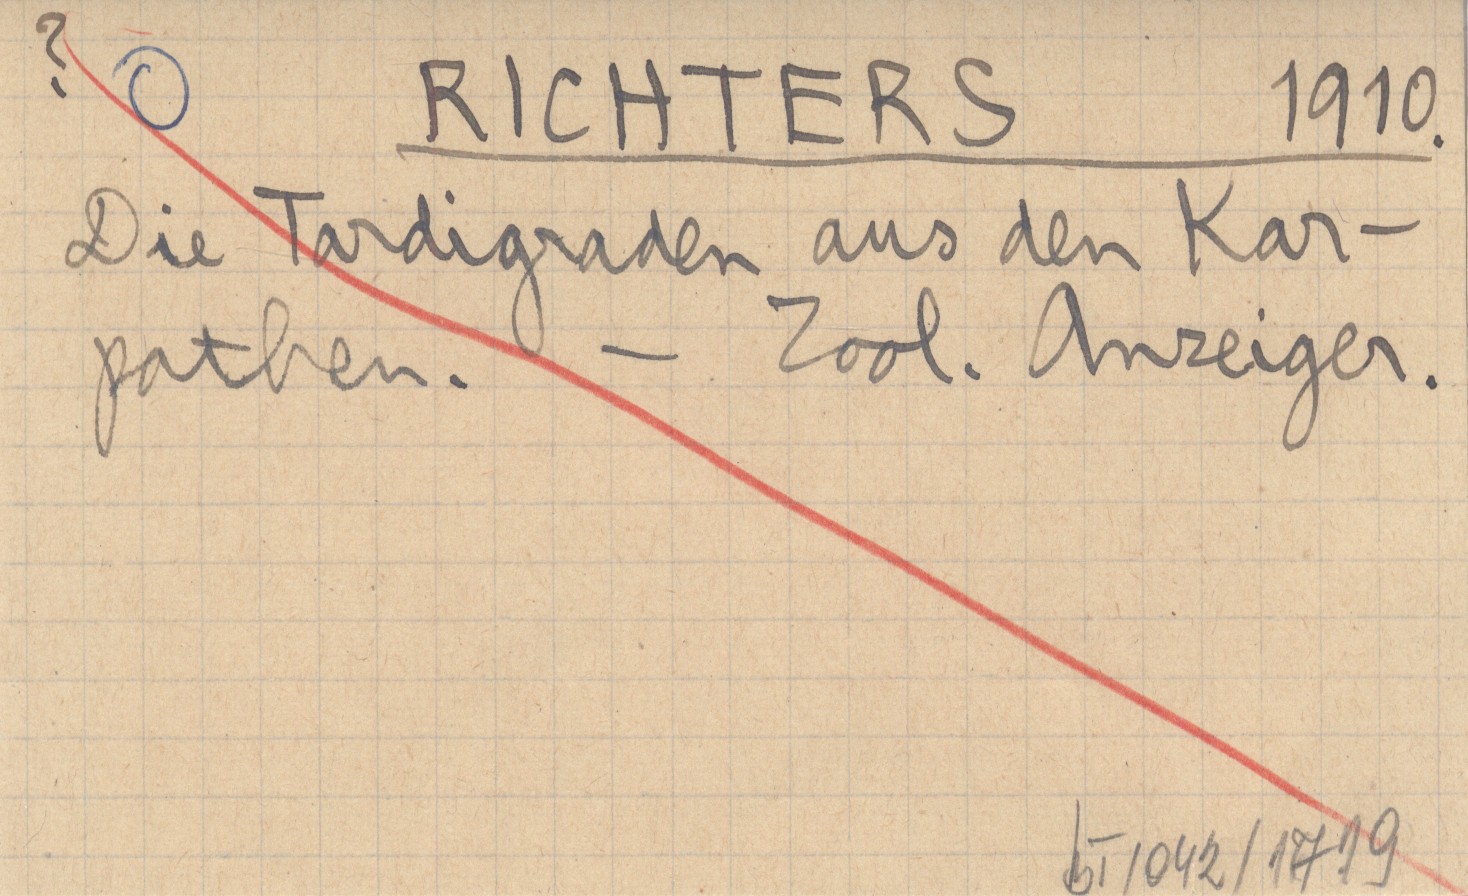 ?
RICHTERS 1910.
Die Tardigraden aus den Kar-
pathen. — Zool. Anzeiger.
bI/042/1719